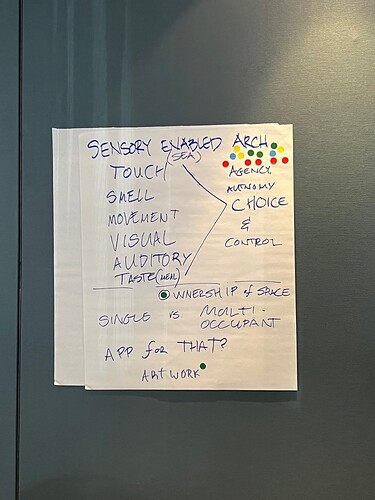 SENSORY ENABLED ARCH
(SEA)
TOUCH
SMELL
MOVEMENT
VISUAL
AUDITORY
TASTE (MEAL)
AGENCY,
AUTONOMY
CHOICE
&
CONTROL
OWNERSHIP of SPACE
SINGLE vs MULTI-
OCCUPANT
APP for THAT?
ARTWORK